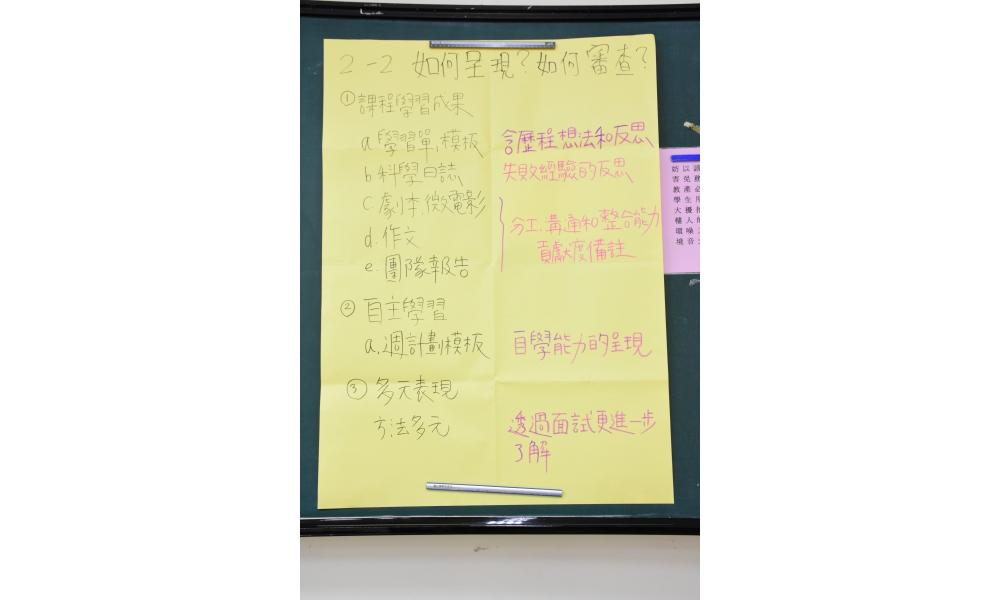 2-2 如何呈現?如何審查?
①課程學習成果
a.學習單,模板 含歷程想法和反思
b.科學日誌 失敗經驗的反思
c.劇本,微電影 分工.溝通和整合能力
d.作文 貢獻度備註
e.團隊報告
②自主學習
a.週計劃模板 自學能力的呈現
③多元表現
方法多元 透過面試更進一步
了解